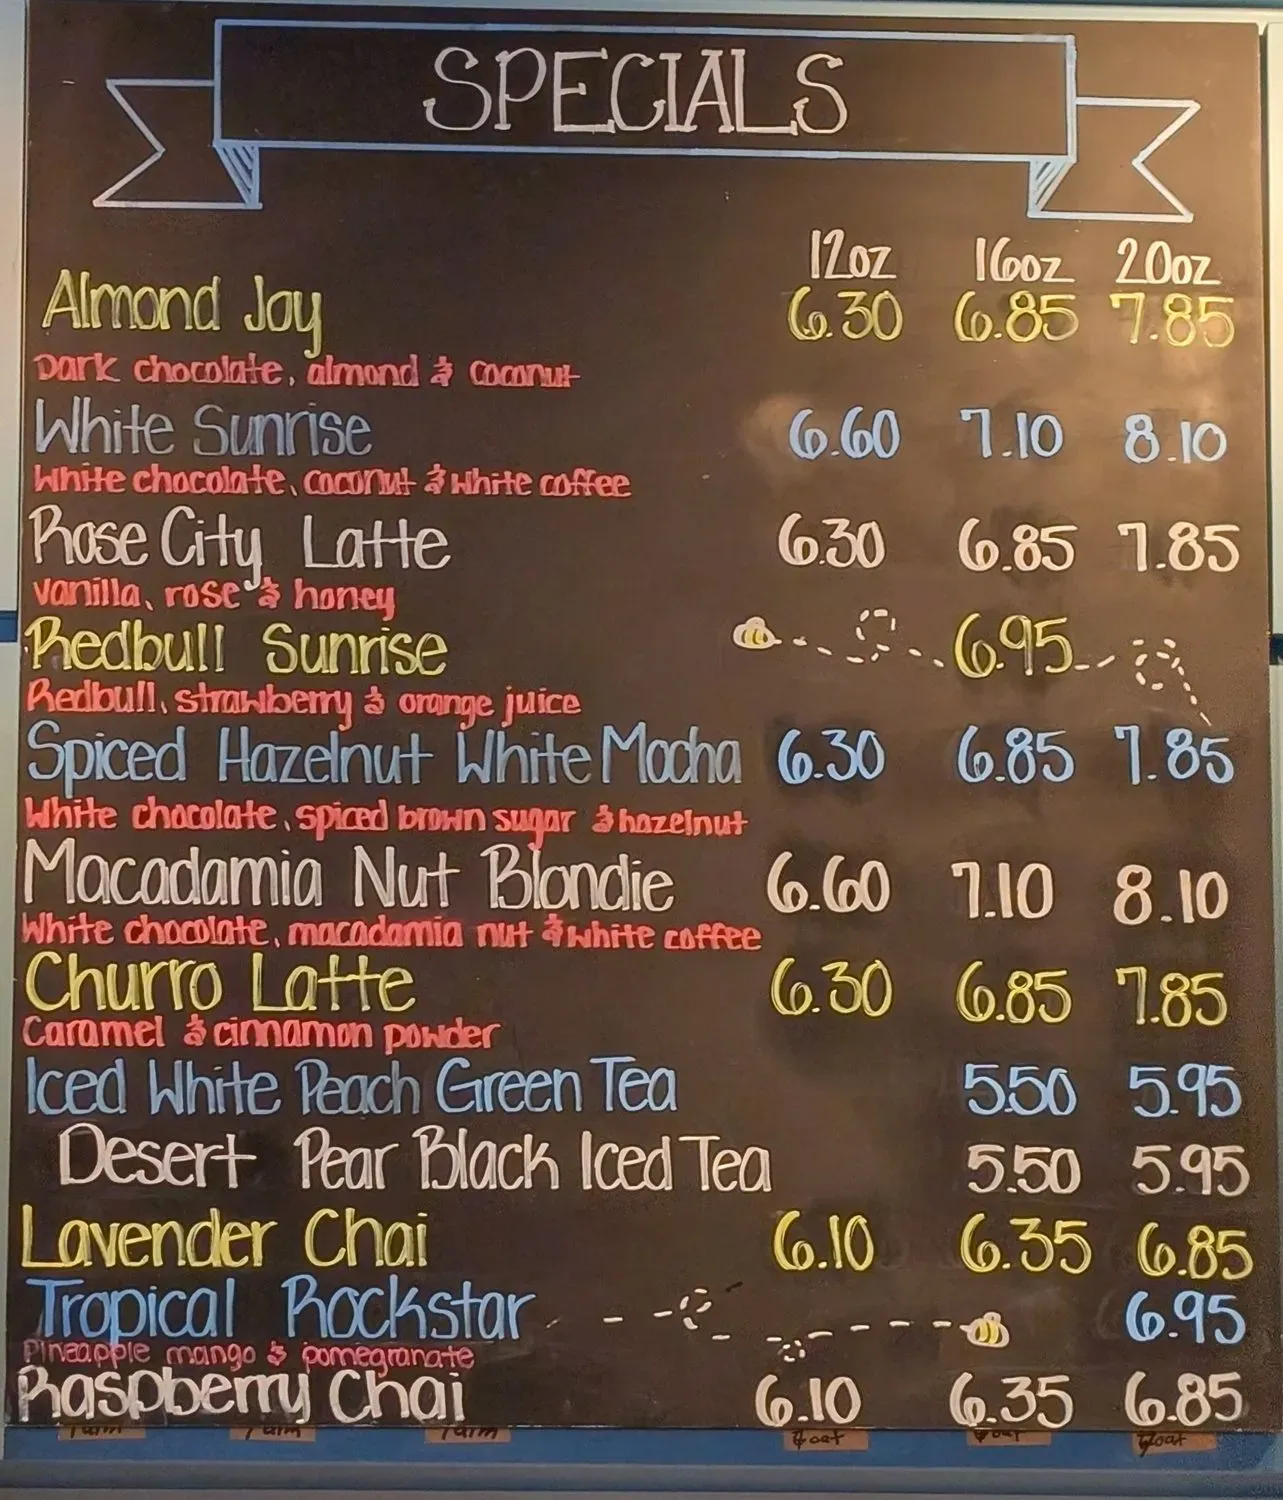 SPECIALS
12oz 16oz 20oz
Almond Joy 6.30 6.85 7.85
Dark chocolate, almond & coconut
White Sunrise 6.60 7.10 8.10
White chocolate, coconut & white coffee
Rose City Latte 6.30 6.85 7.85
vanilla, rose & honey
Redbull Sunrise 6.95
Redbull, strawberry & orange juice
Spiced Hazelnut White Mocha 6.30 6.85 7.85
White chocolate, spiced brown sugar & hazelnut
Macadamia Nut Blondie 6.60 7.10 8.10
White chocolate, macadamia nut & white coffee
Churro Latte 6.30 6.85 7.85
Caramel & cinnamon powder
Iced White Peach Green Tea 5.50 5.95
Desert Pear Black Iced Tea 5.50 5.95
Lavender Chai 6.10 6.35 6.85
Tropical Rockstar 6.95
Pineapple mango & pomegranate
Raspberry Chai 6.10 6.35 6.85